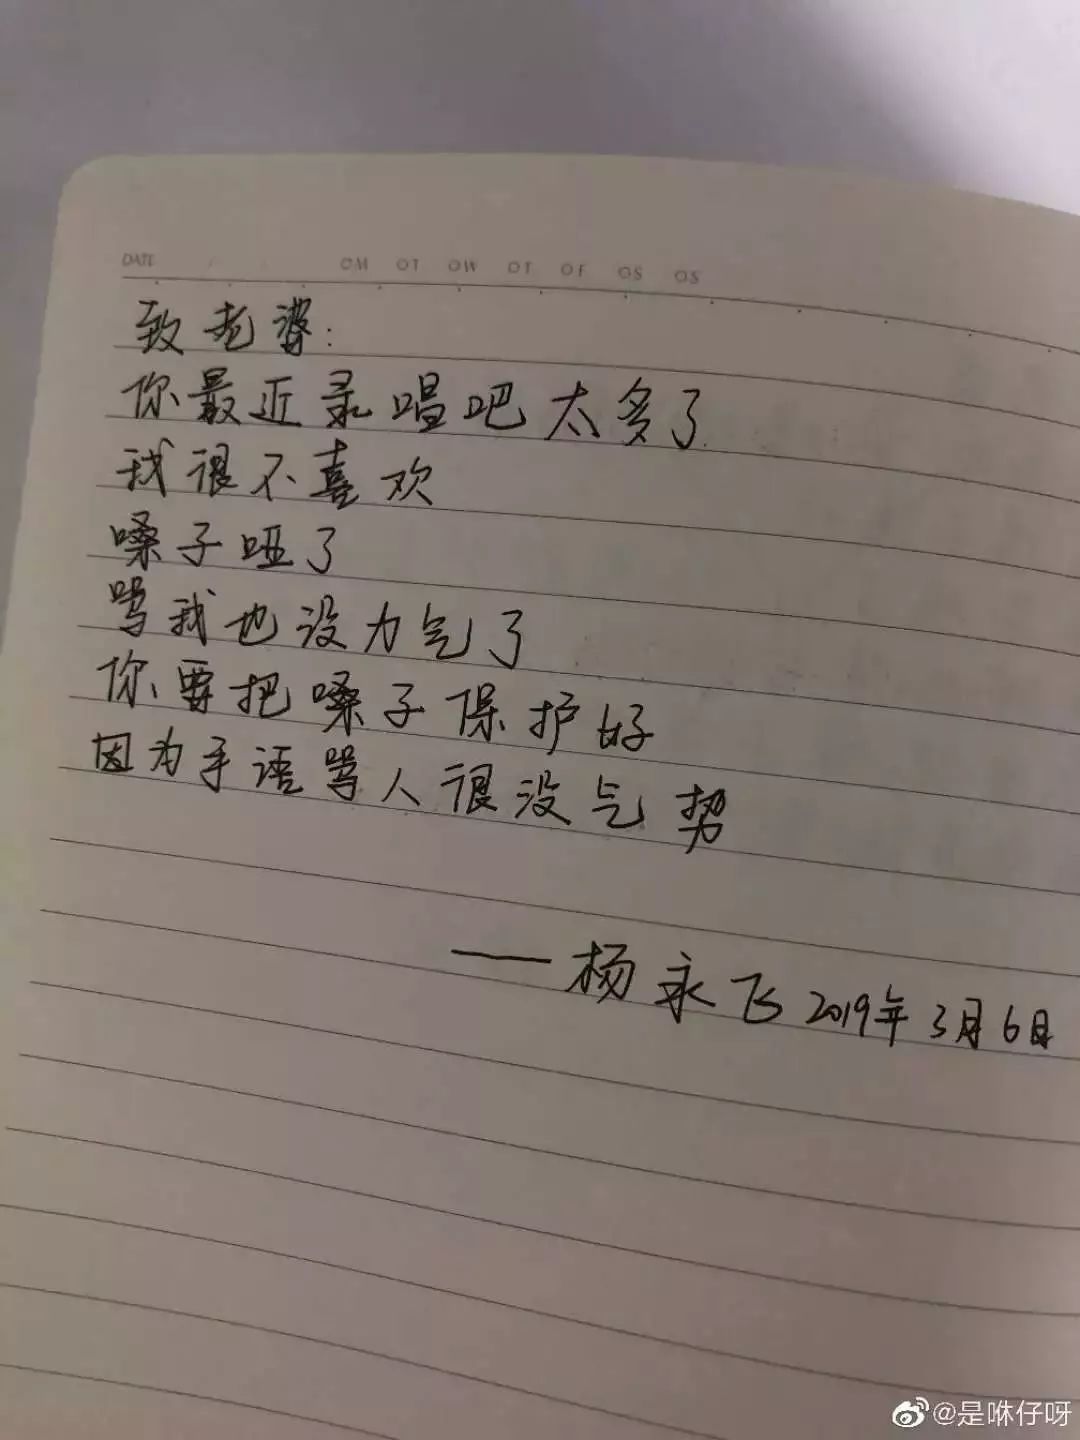 DATE
OM OT OW OT OF OS OS
致老婆:
你最近录唱吧太多了
我很不喜欢
嗓子哑了
骂我也没力气了
你要把嗓子保护好
因为手语骂人很没气势
——杨永飞 2019年3月6日
@是咻仔呀